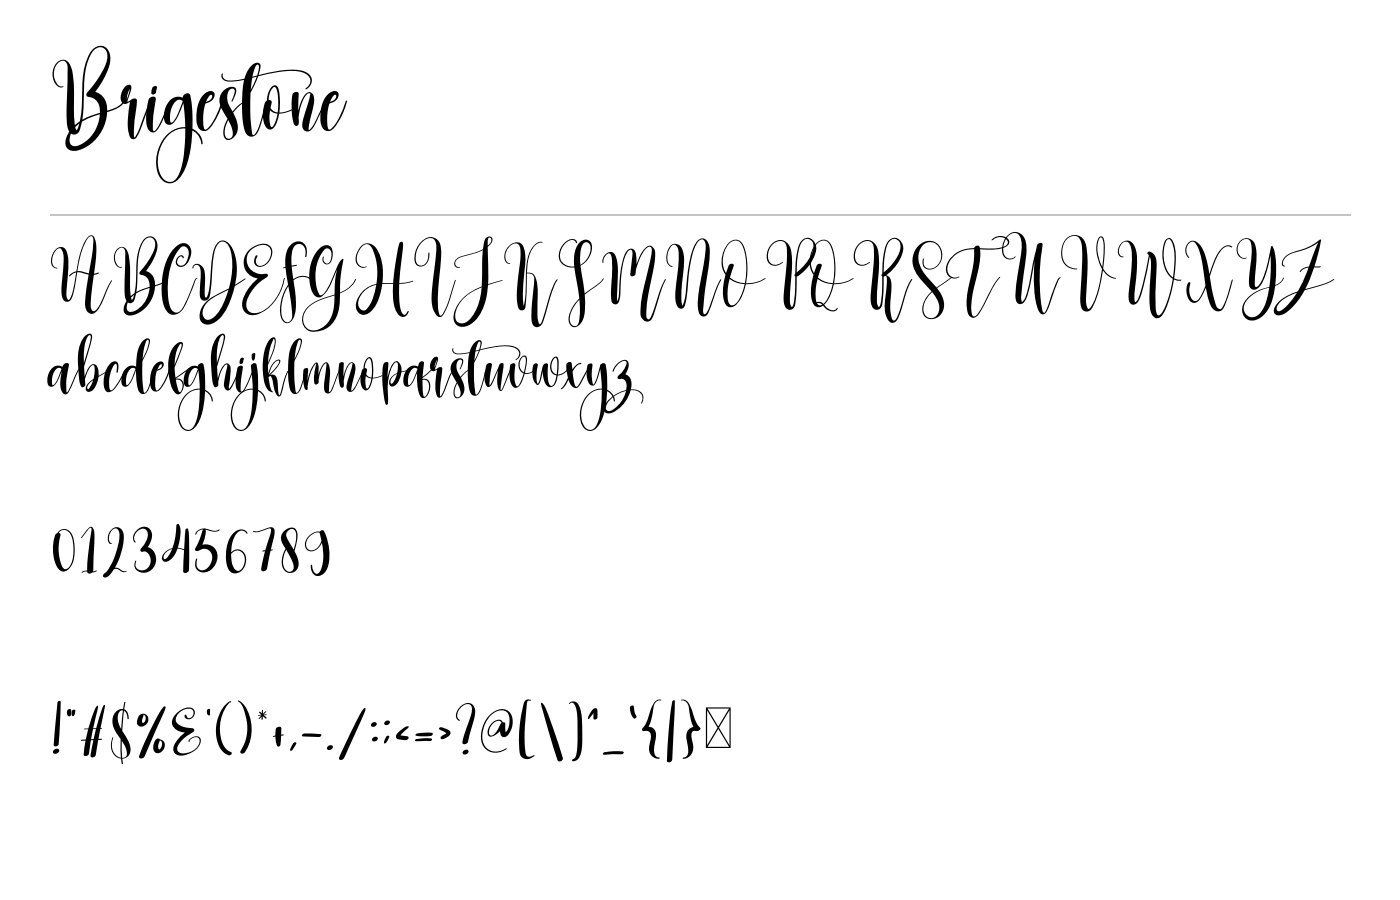 Brigestone
ABCDEFGHIJKLMNOPQRSTUVWXYZ
abcdefghijklmnopqrstuvwxyz
0123456789
!"#$%&'()*+,-./:;<=>?@[\]^_`{|}